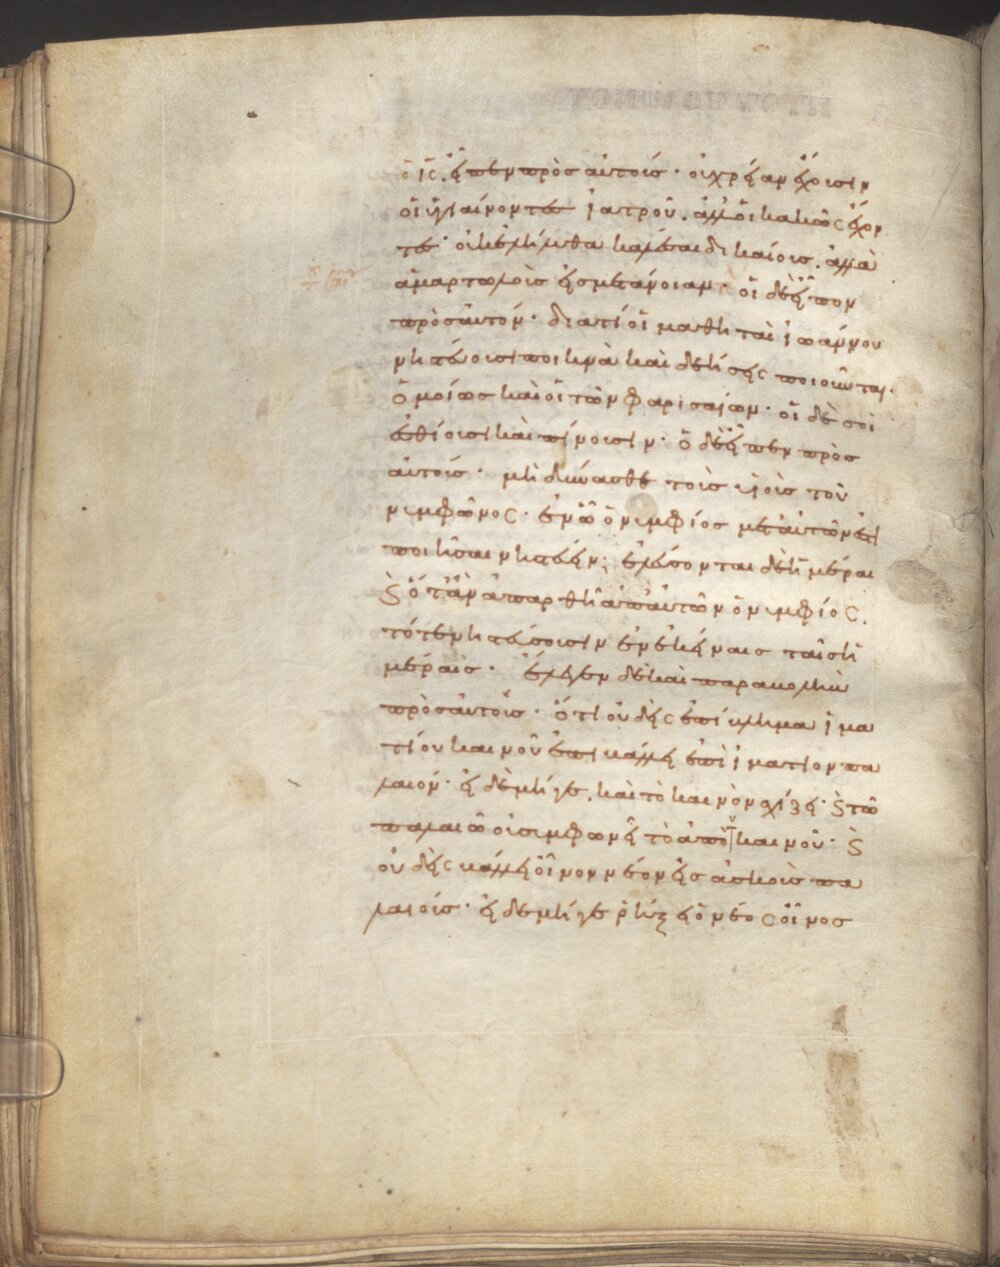 ὁ ις. εἶπεν πρὸς αὐτούς· οὐ χρείαν ἔχουσιν
οἱ ὑγιαίνοντες ἰατροῦ. ἀλλ οἱ κακῶς ἔχον
τες· οὐκ ἐλήλυθα καλέσαι δικαίους. ἀλλὰ
ἁμαρτωλοὺς εἰς μετάνοιαν· οἱ δὲ εἶπον
πρὸς αὐτόν· διατί οἱ μαθηταὶ ἰωάννου
νηστεύουσι πυκνὰ καὶ δεήσεις ποιοῦνται·
ὁμοίως καὶ οἱ τῶν φαρισαίων· οἱ δὲ σοὶ
ἐσθίουσι καὶ πίνουσιν· ὁ δὲ εἶπεν πρὸς
αὐτούς· μὴ δύνασθε τοὺς υἱοὺς τοῦ
νυμφῶνος· ἐν ᾧ ὁ νυμφίος μετ αὐτῶν ἐστι
ποιῆσαι νηστεύειν; ἐλεύσονται δὲ ἡμέραι
ϗ ὅταν ἀπαρθῆ ἀπ αὐτῶν ὁ νυμφίος.
τότε νηστεύσουσιν ἐν ἐκείναις ταῖς ἡ
μέραις· ἔλεγεν δὲ καὶ παραβολὴν
πρὸς αὐτούς· ὅτι οὐδεὶς ἐπίβλημα ἱμα
τίου καινοῦ ἐπιβάλλει ἐπὶ ἱμάτιον πα
λαιόν· εἰ δὲ μήγε. καὶ τὸ καινὸν σχίζει· ϗ τῶ
παλαιῶ οὐ συμφωνεῖ τὸ ἀπὸ τοῦ καινοῦ· ϗ
οὐδεὶς βάλλει οἶνον νέον εἰς ἀσκοὺς πα
λαιούς· εἰ δὲ μήγε ῥήξει ὁ νέος οἶνος